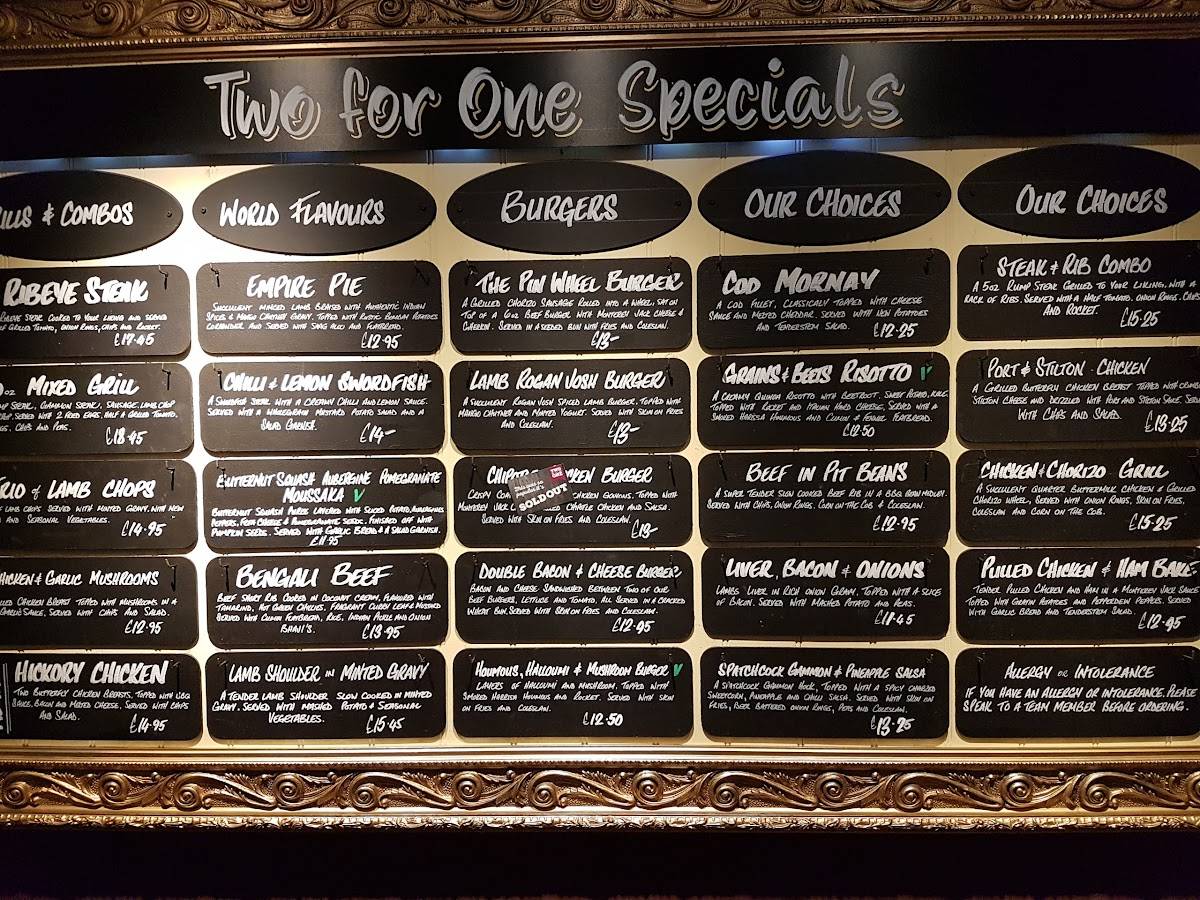 Two for One Specials
ILLS & COMBOS
RIBEYE STEAK
RIBEYE STEAK COOKED TO YOUR LIKING AND SERVED
GRILLED TOMATO, ONION RINGS, CHIPS AND ROCKET.
£17.45
OZ MIXED GRILL
STEAK, GAMMON STEAK, SAUSAGE, LAMB CHOP
SERVED WITH 2 FRIED EGGS, HALF A GRILLED TOMATO,
CHIPS AND PEAS.
£18.95
RIO OF LAMB CHOPS
LAMB CHOPS SERVED WITH MINTED GRAVY, WITH NEW
AND SEASONAL VEGETABLES.
£14.95
HICKEN & GARLIC MUSHROOMS
CHICKEN BREAST TOPPED WITH MUSHROOMS IN A
GARLIC SAUCE, SERVED WITH CHIPS AND SALAD.
£12.95
HICKORY CHICKEN
TWO BUTTERFLY CHICKEN BREASTS, TOPPED WITH BBQ
SAUCE, BACON AND MELTED CHEESE, SERVED WITH CHIPS
AND SALAD.
£14.95
WORLD FLAVOURS
EMPIRE PIE
SUCCULENT MINCED LAMB BRAISED WITH AUTHENTIC INDIAN
SPICE & MANGO CHUTNEY GRAVY. TOPPED WITH RUSTIC BOMBAY POTATOES
CORIANDER AND SERVED WITH SAAG ALOO AND FLATBREAD.
£12.95
CHILLI & LEMON SWORDFISH
A SWORDFISH STEAK WITH A CREAMY CHILLI AND LEMON SAUCE.
SERVED WITH A WHOLEGRAIN MUSTARD POTATO SALAD AND A
SALAD GARNISH.
£14-
BUTTERNUT SQUASH AUBERGINE POMEGRANATE
MOUSSAKA V
BUTTERNUT SQUASH PUREE LAYERED WITH SLICED POTATO, AUBERGINES
PEPPERS, FETA CHEESE & POMEGRANATE SEEDS. FINISHED OFF WITH
PUMPKIN SEEDS. SERVED WITH GARLIC BREAD & A SALAD GARNISH.
£11.95
BENGALI BEEF
BEEF SHORT RIB COOKED IN COCONUT CREAM, FLAVOURED WITH
TAMARIND, HOT GREEN CHILLIES, FRAGRANT CURRY LEAF & MUSTARD
SERVED WITH CUMIN FLATBREAD, RICE, INDIAN PICKLE AND ONION
BHAJI'S.
£13.95
LAMB SHOULDER IN MINTED GRAVY
A TENDER LAMB SHOULDER SLOW COOKED IN MINTED
GRAVY. SERVED WITH MASHED POTATO & SEASONAL
VEGETABLES.
£15.45
BURGERS
THE PIN WHEEL BURGER
A GRILLED CHORIZO SAUSAGE ROLLED INTO A WHEEL, SAT ON
TOP OF A 6OZ BEEF BURGER WITH MONTEREY JACK CHEESE &
GHERKIN. SERVED IN A SEEDED BUN WITH FRIES AND COLESLAW.
£13-
LAMB ROGAN JOSH BURGER
A SUCCULENT ROGAN JOSH SPICED LAMB BURGER, TOPPED WITH
MANGO CHUTNEY AND MINTED YOGHURT. SERVED WITH SKIN ON FRIES
AND COLESLAW.
£13-
CHIPOTLE CHICKEN BURGER
CRISPY CHICKEN GOUJONS, TOPPED WITH
MONTEREY JACK CHIPOTLE CHICKEN AND SALSA.
SERVED WITH SKIN ON FRIES AND COLESLAW.
£13-
SOLD OUT
DOUBLE BACON & CHEESE BURGER
BACON AND CHEESE SANDWICHED BETWEEN TWO OF OUR
BEEF BURGERS, LETTUCE AND TOMATO, ALL SERVED IN A CRACKED
WHEAT BUN. SERVED WITH SKIN ON FRIES AND COLESLAW.
£12.95
HOUMOUS, HALLOUMI & MUSHROOM BURGER V
LAYERS OF HALLOUMI AND MUSHROOM, TOPPED WITH
SMOKED HARISSA HOUMOUS AND ROCKET. SERVED WITH SKIN
ON FRIES AND COLESLAW.
£12.50
OUR CHOICES
COD MORNAY
A COD FILLET, CLASSICALLY TOPPED WITH CHEESE
SAUCE AND MELTED CHEDDAR. SERVED WITH NEW POTATOES
AND TENDERSTEM SALAD.
£12.25
GRAINS & BEETS RISOTTO V
A CREAMY QUINOA RISOTTO WITH BEETROOT, SWEET POTATO, KALE,
TOPPED WITH ROCKET AND ITALIAN HARD CHEESE, SERVED WITH A
SMOKED HARISSA HOUMOUS AND CUMIN & FENNEL FLATBREAD.
£12.50
BEEF IN PIT BEANS
A SUPER TENDER SLOW COOKED BEEF RIB IN A BBQ BEAN MEDLEY.
SERVED WITH CHIPS, ONION RINGS, CORN ON THE COB & COLESLAW.
£12.95
LIVER, BACON & ONIONS
LAMBS' LIVER IN RICH ONION GRAVY, TOPPED WITH A SLICE
OF BACON. SERVED WITH MASHED POTATO AND PEAS.
£11.45
SPATCHCOCK GAMMON & PINEAPPLE SALSA
A SPATCHCOCK GAMMON HOCK, TOPPED WITH A SPICY CHARRED
SWEETCORN, PINEAPPLE AND CHILLI SALSA. SERVED WITH SKIN ON
FRIES, BEER BATTERED ONION RINGS, PEAS AND COLESLAW.
£13.25
OUR CHOICES
STEAK & RIB COMBO
A 5OZ RUMP STEAK GRILLED TO YOUR LIKING, WITH A
RACK OF RIBS. SERVED WITH A HALF TOMATO, ONION RINGS, CHIPS
AND ROCKET.
£15.25
PORT & STILTON CHICKEN
A GRILLED BUTTERFLY CHICKEN BREAST TOPPED WITH CRUMBLED
STILTON CHEESE AND DRIZZLED WITH PORT AND STILTON SAUCE. SERVED
WITH CHIPS AND SALAD.
£13.25
CHICKEN & CHORIZO GRILL
A SUCCULENT QUARTER BUTTERMILK CHICKEN & GRILLED
CHORIZO WHEEL, SERVED WITH ONION RINGS, SKIN ON FRIES,
COLESLAW AND CORN ON THE COB.
£15.25
PULLED CHICKEN & HAM BAKE
TENDER PULLED CHICKEN AND HAM IN A MONTEREY JACK SAUCE
TOPPED WITH GRATIN POTATOES AND PEPPERDEW PEPPERS. SERVED
WITH GARLIC BREAD AND TENDERSTEM SALAD.
£12.95
ALLERGY OR INTOLERANCE
IF YOU HAVE AN ALLERGY OR INTOLERANCE, PLEASE
SPEAK TO A TEAM MEMBER BEFORE ORDERING.